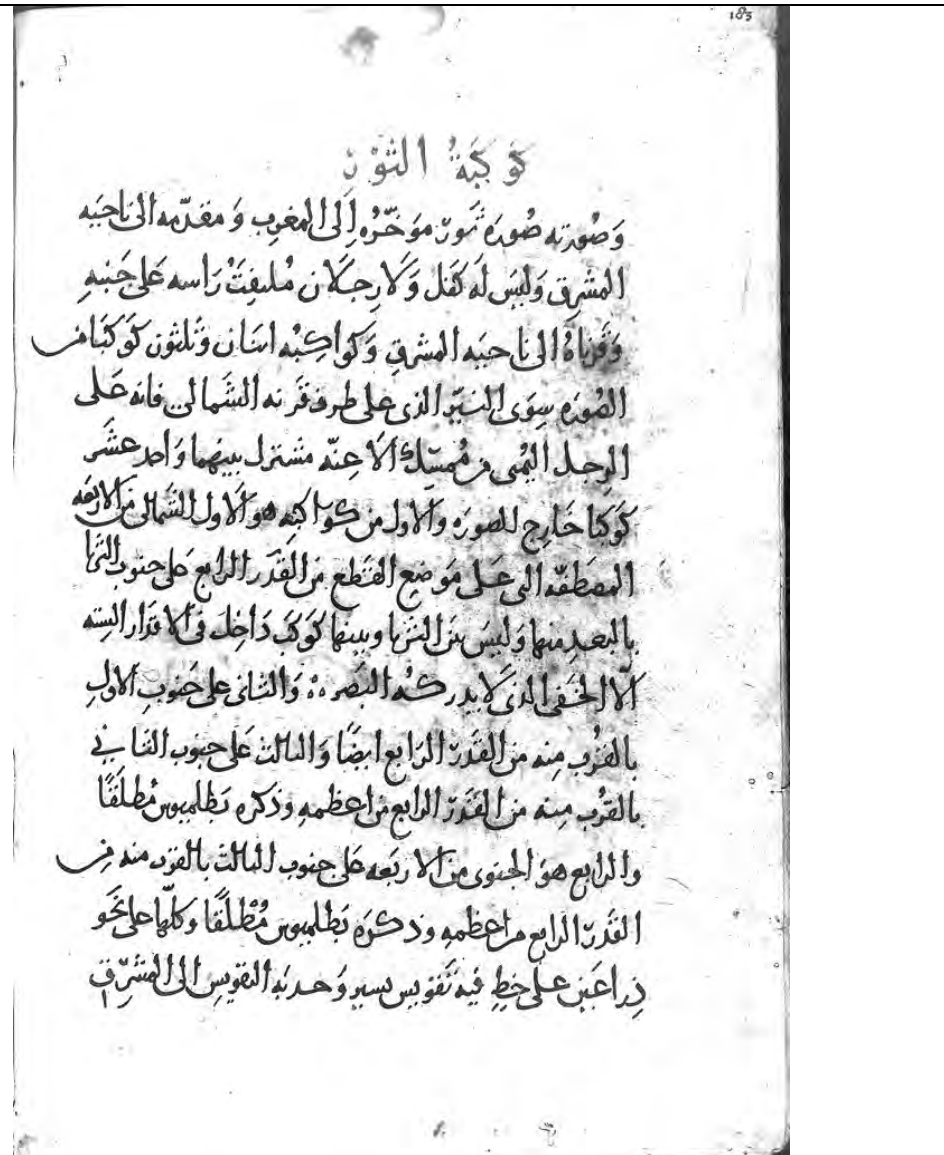 183
كَوكَبَةُ الثَّوْرِ
وَصُورته صُورَة ثَورٍ مَوخّرُه إلى المغرب وَ مقدّمه الى ناحيَه
المشرِق وَليسَ له كفل وَلا رجلان مُلتفِتُ رَاسه عَلى جَنبهِ
وَقرناهُ الى ناحيَه المشرق وَكواكِبُه اثنان وَثلثون كَوكبًا من
الصُورَه سِوَى النيّر الذى على طرف قَرنه الشَّمالى فانه عَلى
الرِجل اليُمنى من مُمسِك الاعِنّه مشترك بينهما وَاحد عشَر
كَوكبا خَارج الصورَه والاول من كَواكبه هو الاول الشمالى من الاربعه
المصطفّه التى عَلى مَوضِع القَطع من القَدر الرابع على جنوب الثريا
بالبعد منها وَليسَ بين الثريا وبينها كَوكب دَاخِل فى الاقدار الستّه
الّا الخفى الذى لا يدركه البَصر ه وَالثانى على جَنوب الاولِ
بالقُرب مِنه من القَدرِ الرَابع ايضًا وَالثالث عَلى جنوب الثانى
بالقرب مِنه من القَدرِ الرابع من اعظمهِ وذكره بَطلميوس مُطلَقًا
والرابع هوَ الجنوبى من الاربَعه عَلى جنوب الثالث بالقرب منه من
القَدرِ الرابع من اعظمهِ وذكرَه بَطلميوس مُطْلَقًا وكلّها على نحَو
ذِراعَين عَلى خطٍ فيه تَقويس يسير وَحدبَه التقويس الى المشرِق